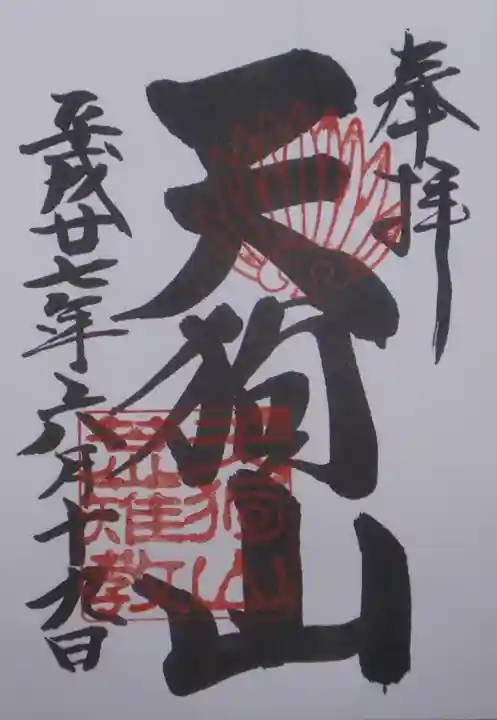 奉拝
天狗山
平成廿七年六月十九日